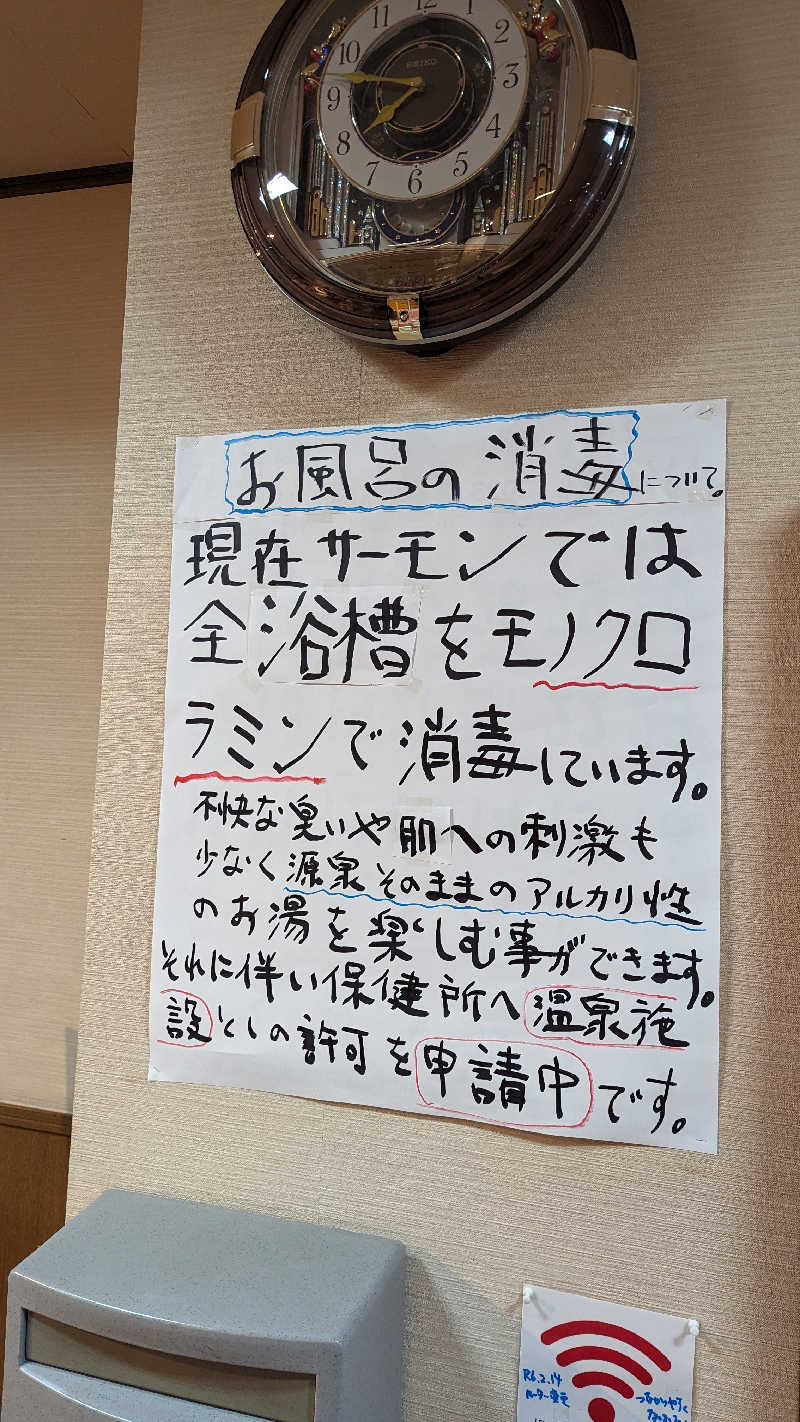 12
1
2
3
4
5
6
7
8
9
10
11
SEIKO
お風呂の消毒について。
現在サーモンでは
全浴槽をモノクロ
ラミンで消毒しています。
不快な臭いや肌への刺激も
少なく源泉そのままのアルカリ性
のお湯を楽しむ事ができます。
それに伴い保健所へ温泉施
設としの許可を申請中です。
R6.2.14
ルーター変更
つながりやすく